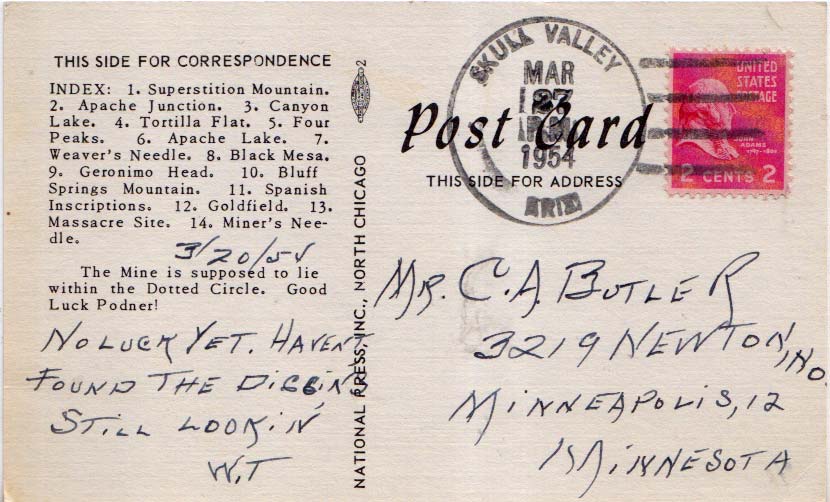 THIS SIDE FOR CORRESPONDENCE
INDEX: 1. Superstition Mountain.
2. Apache Junction. 3. Canyon
Lake. 4. Tortilla Flat. 5. Four
Peaks. 6. Apache Lake. 7.
Weaver's Needle. 8. Black Mesa.
9. Geronimo Head. 10. Bluff
Springs Mountain. 11. Spanish
Inscriptions. 12. Goldfield. 13.
Massacre Site. 14. Miner's Nee-
dle.
3/20/54
The Mine is supposed to lie
within the Dotted Circle. Good
Luck Podner!
NO LUCK YET. HAVEN'T
FOUND THE DIGGINS
STILL LOOKIN
W.T
NATIONAL PRESS, INC., NORTH CHICAGO
2
SKULL VALLEY
MAR
27
PM
1954
ARIZ.
Post Card
THIS SIDE FOR ADDRESS
UNITED
STATES
POSTAGE
JOHN
ADAMS
1797-1801
2 CENTS 2
MR. C.A. BUTLER
3219 NEWTON
NO.
MINNEAPOLIS, 12
MINNESOTA